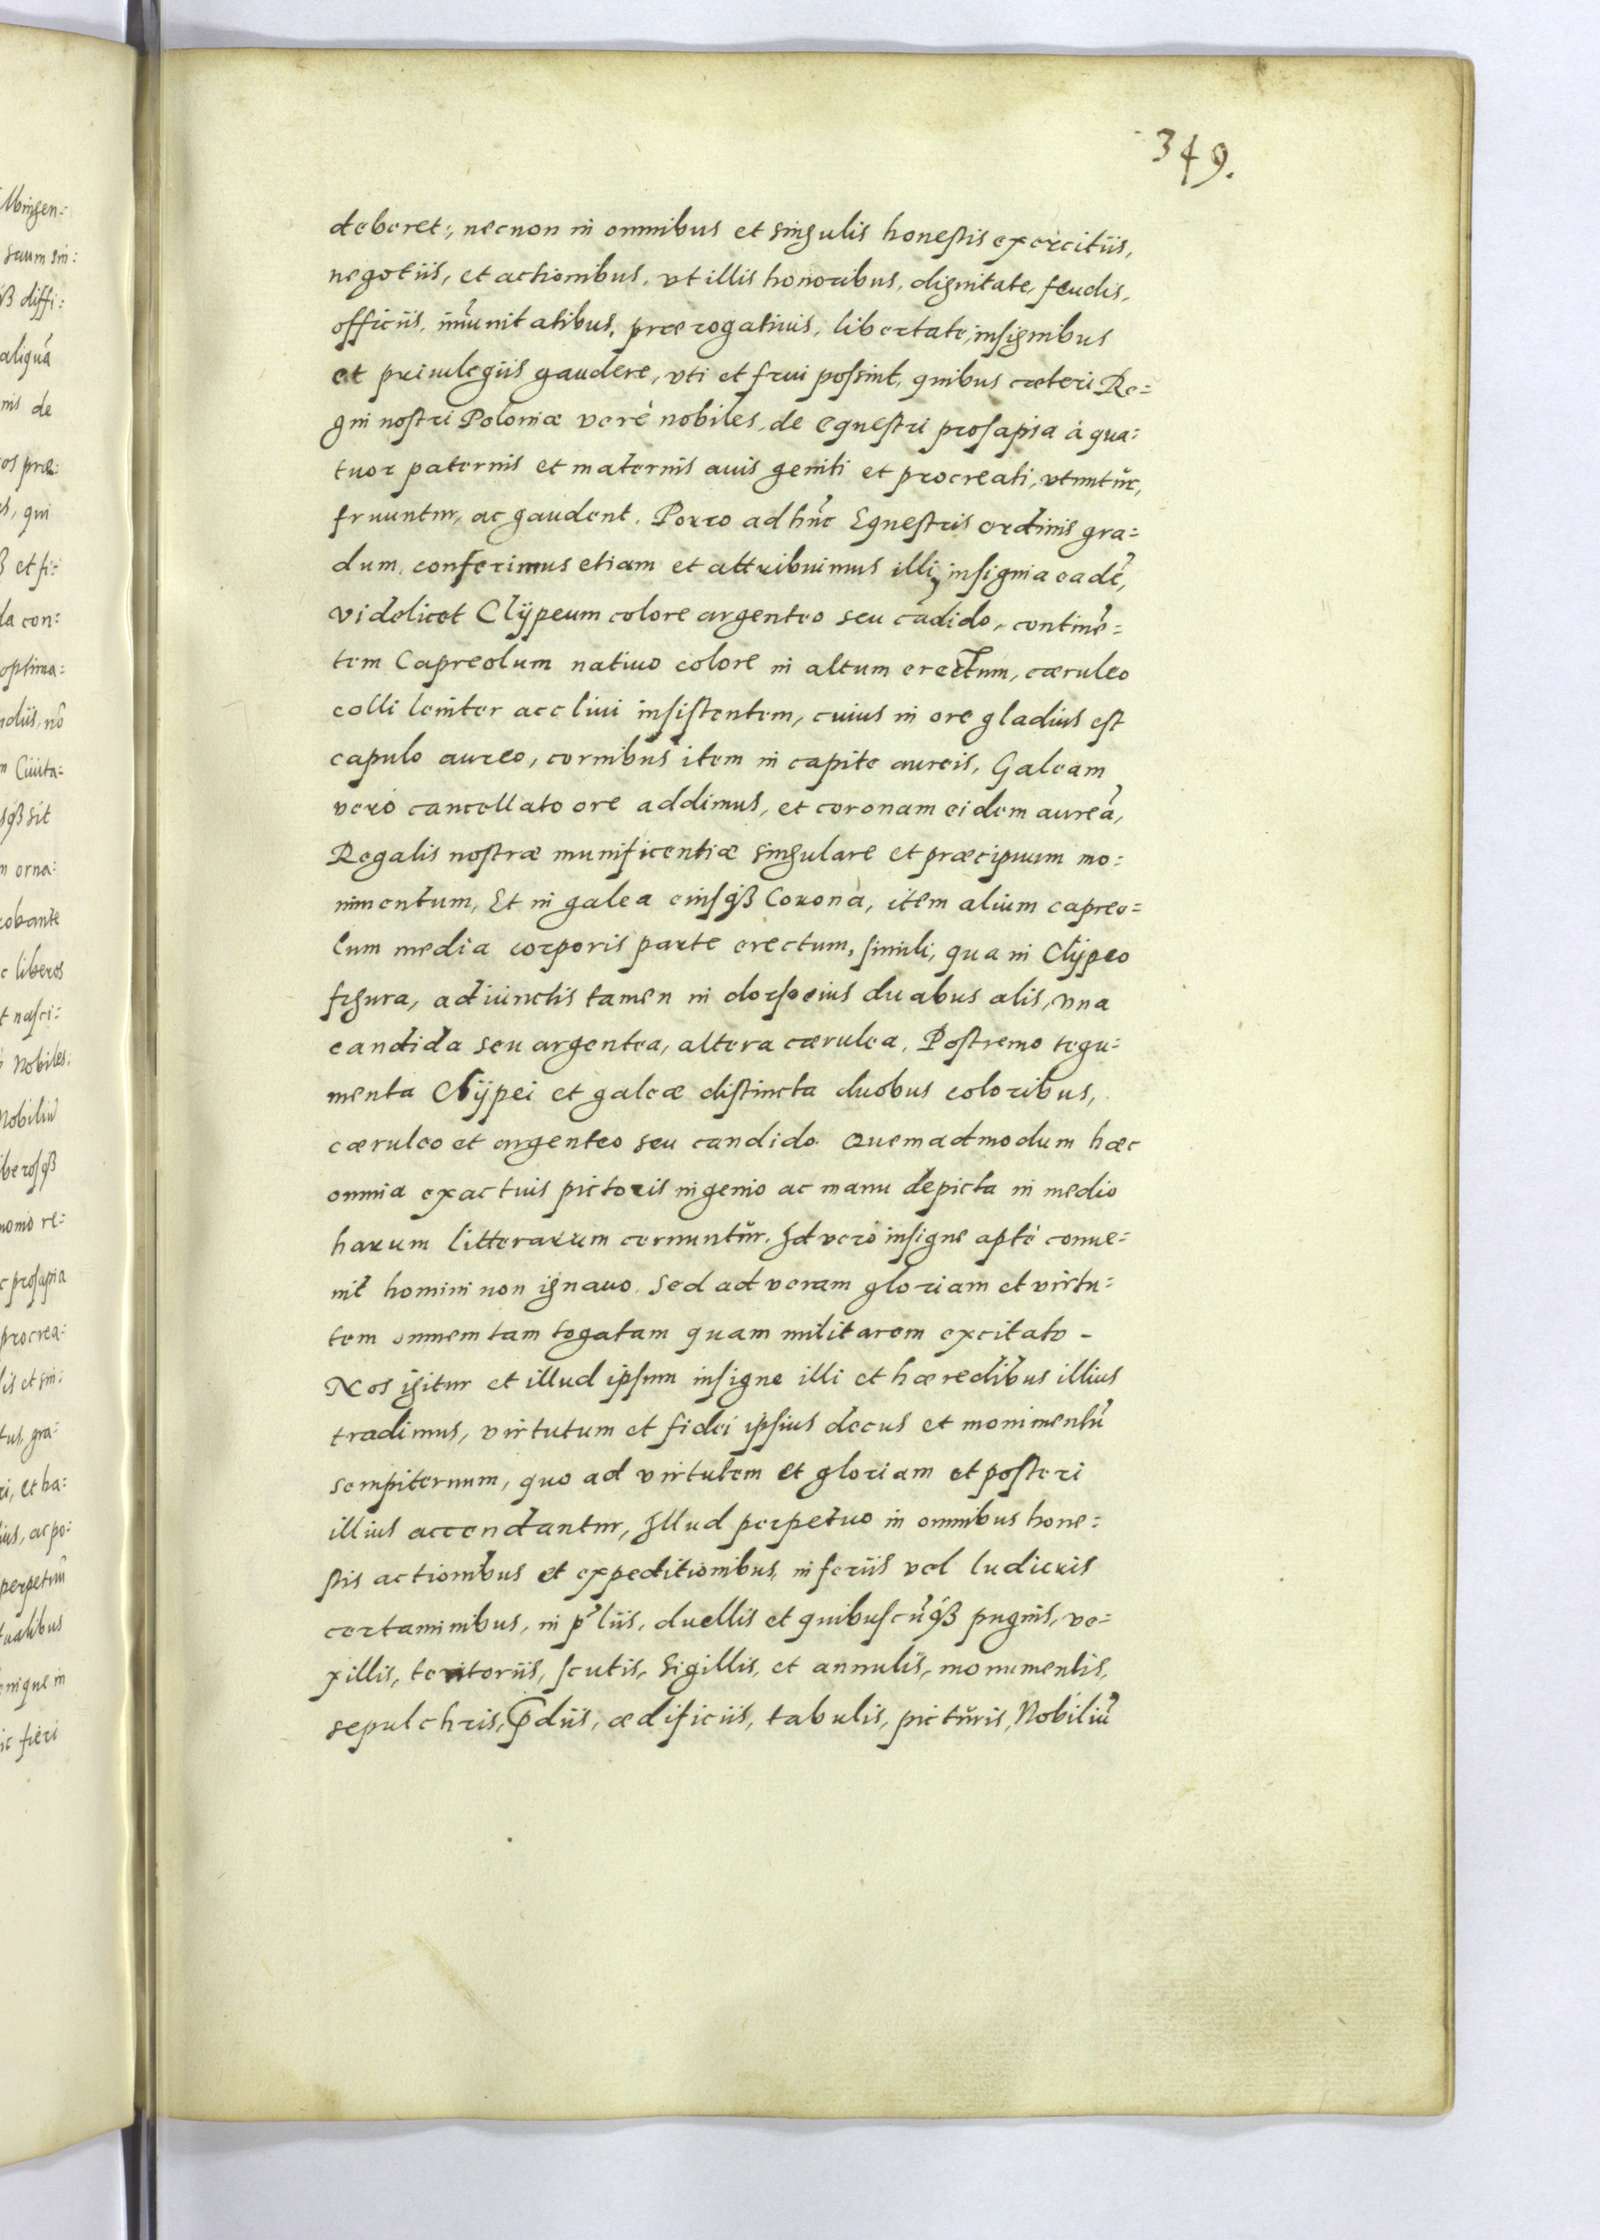 349.
deberet:, necnon in omnibus et singulis honestis exercitiis,
negotiis, et actionibus, vt illis honoribus, dignitate, feudis,
officiis, im̃unitatibus, prærogatiuis, libertate, insignibus
et priuilegiis gaudere, vti et frui possint, quibus cæteri Re=
gni nostri Poloniæ verè nobiles, de equestri prosapia à qua=
tuor paternis et maternis auis geniti et procreati, vtuntur,
fruuntur, ac gaudent. Porro ad hũc Equestris ordinis gra=
dum, conferimus etiam et attribuimus illi, insignia eadẽ,
videlicet Clÿpeum colore argenteo seu cãdido, continẽ=
tem Capreolum natiuo colore in altum erectum, cæruleo
colli leniter accliui insistentem, cuius in ore gladius est
capulo aureo, cornibus item in capite aureis, Galeam
verò cancellato ore addimus, et coronam eidem aureã,
Regalis nostræ munificentiæ singulare et præcipuum mo=
nimentum, Et in galea eiusqꝫ Corona, item alium capreo=
lum media corporis parte erectum, simili, qua in Clÿpeo
figura, adiunctis tamen in dorso eius duabus alis, vna
candida seu argentea, altera cærulea. Postremo tegu=
menta Clÿpei et galeæ distincta duobus coloribus,
cæruleo et argenteo seu candido Quemadmodum hæc
omnia exactius pictoris ingenio ac manu depicta in medio
harum litterarum cernuntur. Id verò insigne aptè conue=
nit homini non ignauo. Sed ad veram gloriam et virtu=
tem omnem tam togatam quam militarem excitato -
Nos igitur et illud ipsum insigne illi et hæredibus illius
tradimus, virtutum et fidei ipsius decus et monimentũ
sempiternum, quo ad virtutem et gloriam et posteri
illius accendantur, Illud perpetuo in omnibus hone=
stis actionibus et expeditionibus, in seriis vel ludicris
certaminibus, in p̃liis, duellis et quibuscũqꝫ pugnis, ve=
xillis, tentoriis, scutis, sigillis, et annulis, monumentis,
sepulchris, p̃diis, ædificiis, tabulis, picturis, Nobiliũ